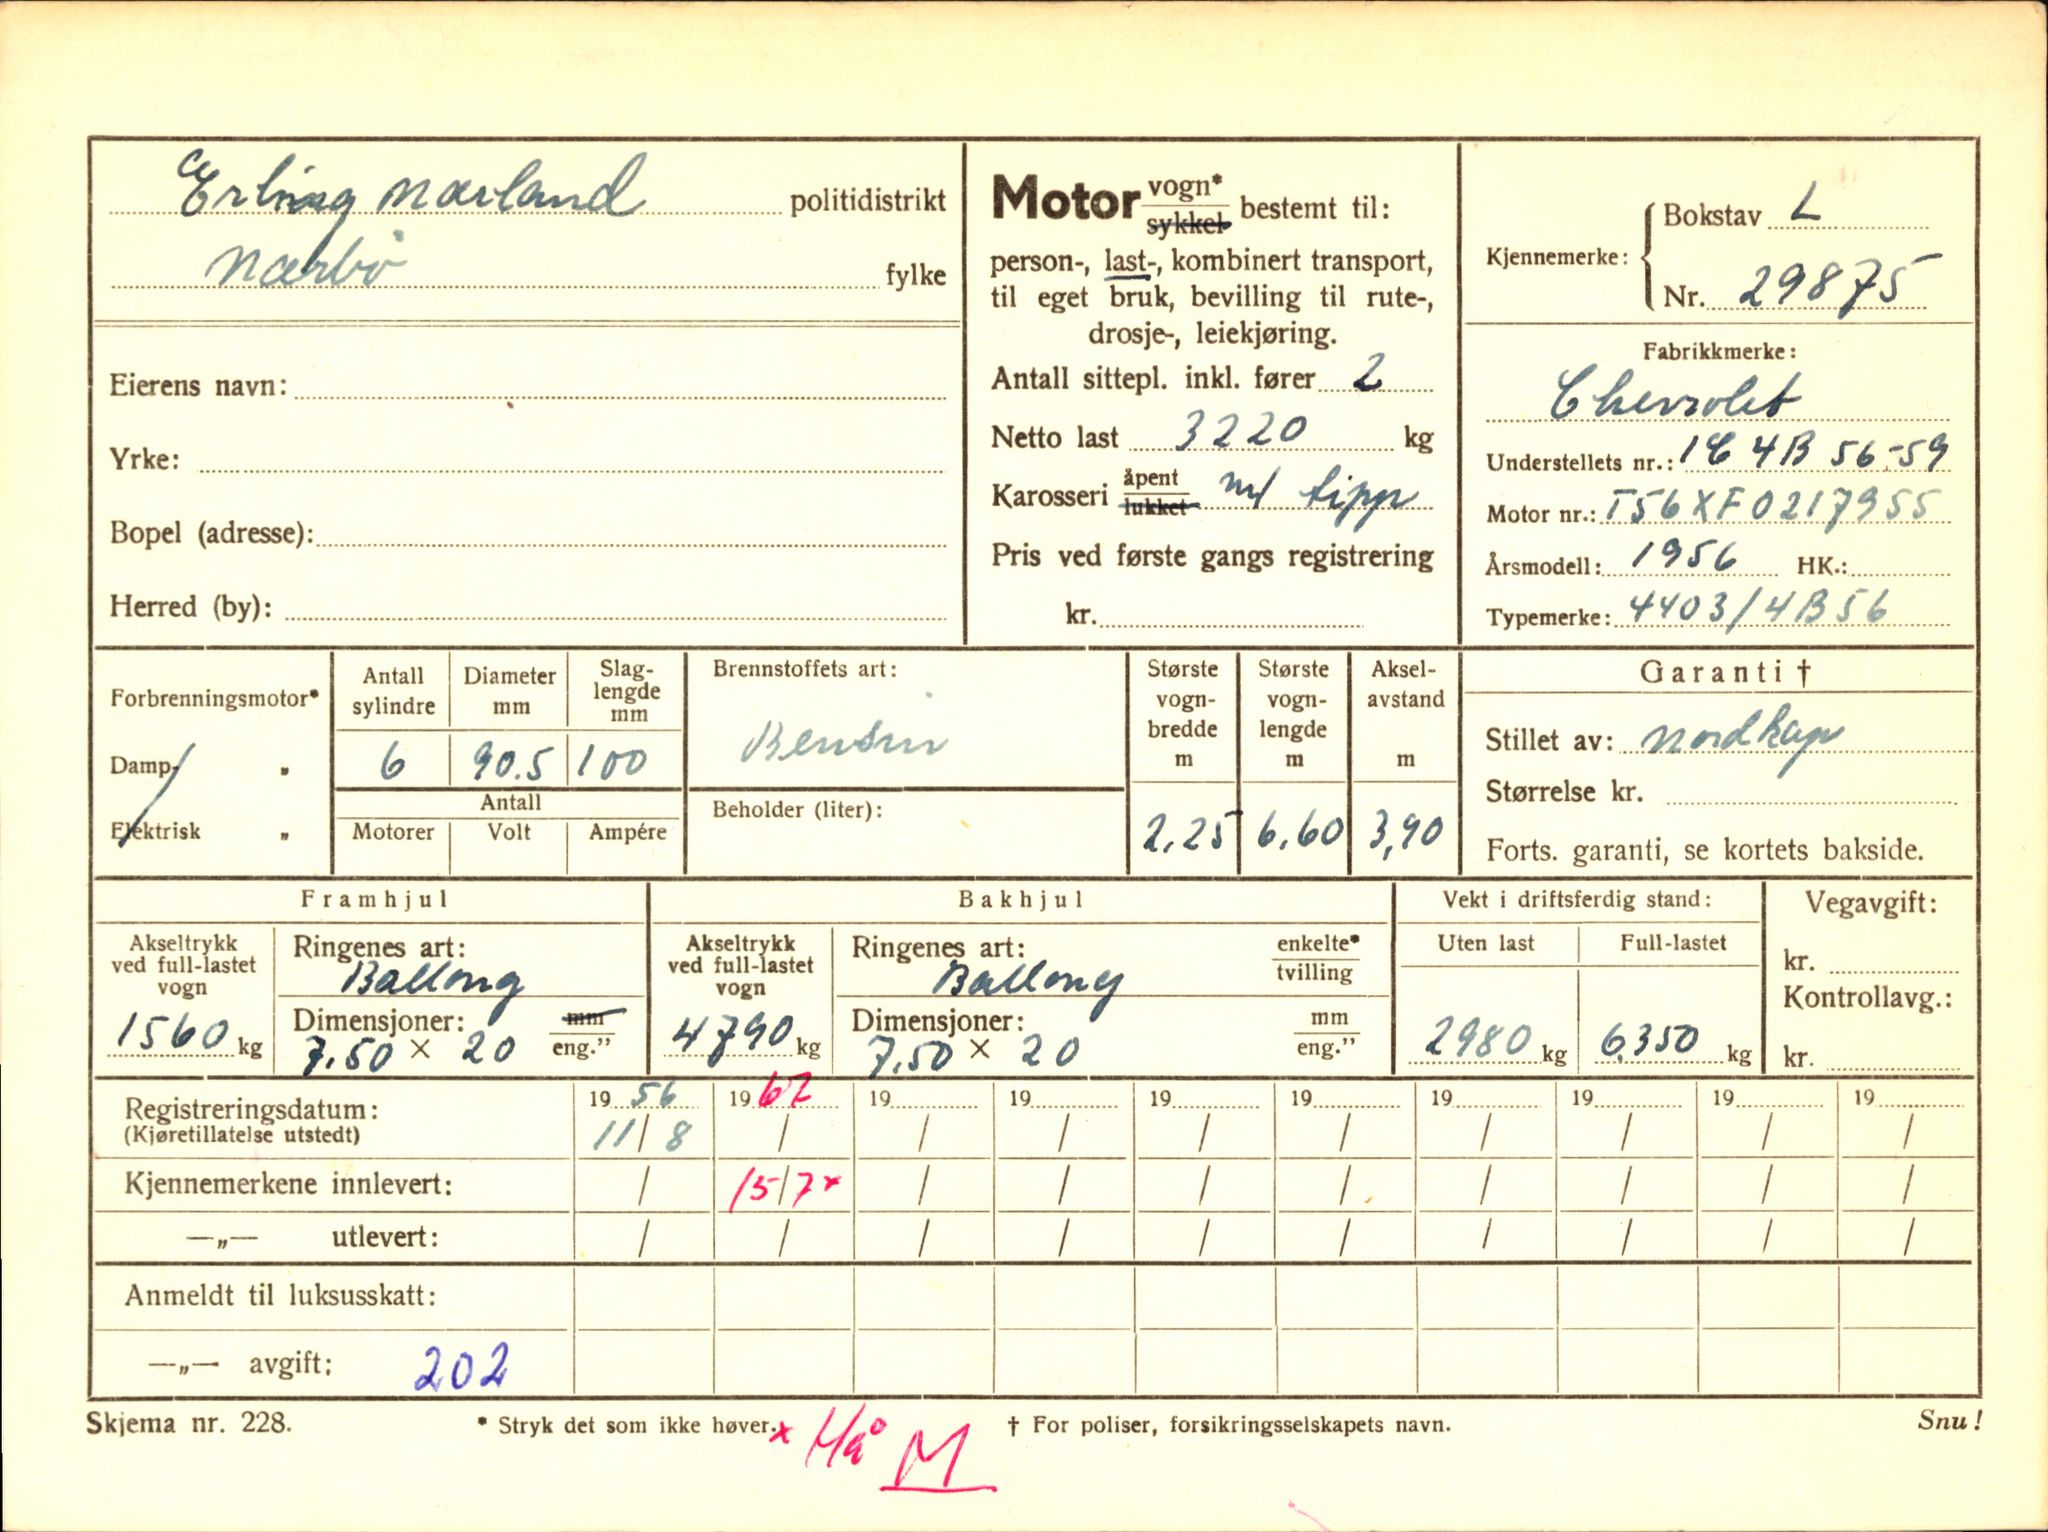 Erling Nærland politidistrikt
Nærbö fylke
Eierens navn:
Yrke:
Bopel (adresse):
Herred (by):
Motor vogn* sykkel bestemt til:
person-, last-, kombinert transport,
til eget bruk, bevilling til rute-,
drosje-, leiekjøring.
Antall sittepl. inkl. fører 2
Netto last 3220 kg
Karosseri åpent lukket m/ tipp
Pris ved første gangs registrering
kr.
Kjennemerke:
Bokstav L
Nr. 29875
Fabrikkmerke:
Chevrolet
Understellets nr.: 1C 4B 56-59
Motor nr.: T56XF0217955
Årsmodell: 1956 HK.:
Typemerke: 4403/4B56
Forbrenningsmotor*
Damp- „
Elektrisk „
Antall sylindre
6
Diameter mm
90.5
Slag-lengde mm
100
Antall
Motorer Volt Ampére
Brennstoffets art:
Bensin
Beholder (liter):
Største vogn-bredde m
2,25
Største vogn-lengde m
6,60
Aksel-avstand m
3,90
Garanti †
Stillet av: Nordkap
Størrelse kr.
Forts. garanti, se kortets bakside.
Framhjul
Akseltrykk ved full-lastet vogn
1560 kg
Ringenes art:
Ballong
Dimensjoner: mm
7.50 × 20 eng."
Bakhjul
Akseltrykk ved full-lastet vogn
4790 kg
Ringenes art: enkelte* tvilling
Ballong
Dimensjoner: mm
7.50 × 20 eng."
Vekt i driftsferdig stand:
Uten last Full-lastet
2980 kg 6350 kg
Vegavgift:
kr.
Kontrollavg.:
kr.
Registreringsdatum: 19 56 19 67 19 19 19 19 19 19 19 19
(Kjøretillatelse utstedt) 11/8 / / / / / / / / /
Kjennemerkene innlevert: / 15/7 x / / / / / / / /
—„— utlevert: / / / / / / / / / /
Anmeldt til luksusskatt:
—„— avgift: 202
Skjema nr. 228.
* Stryk det som ikke høver.
x Hå M
† For poliser, forsikringsselskapets navn.
Snu!